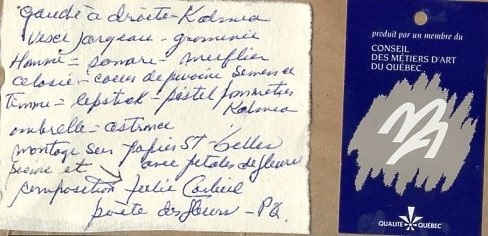 gauche à droite - Kalmia
vesce jargeau - graminée
Homme = sonare - muflier
celosie - coeur de pivoine semence
Femme = lepstick - pistil pommetier
Kalmia
ombrelle - astrance
montage sur papier ST-Gelles
Seeme et avec petales de fleurs
composition Julie
poète des fleurs - PQ.
produit par un membre du
CONSEIL
DES MÉTIERS D'ART
DU QUÉBEC
MA
QUALITÉ QUÉBEC